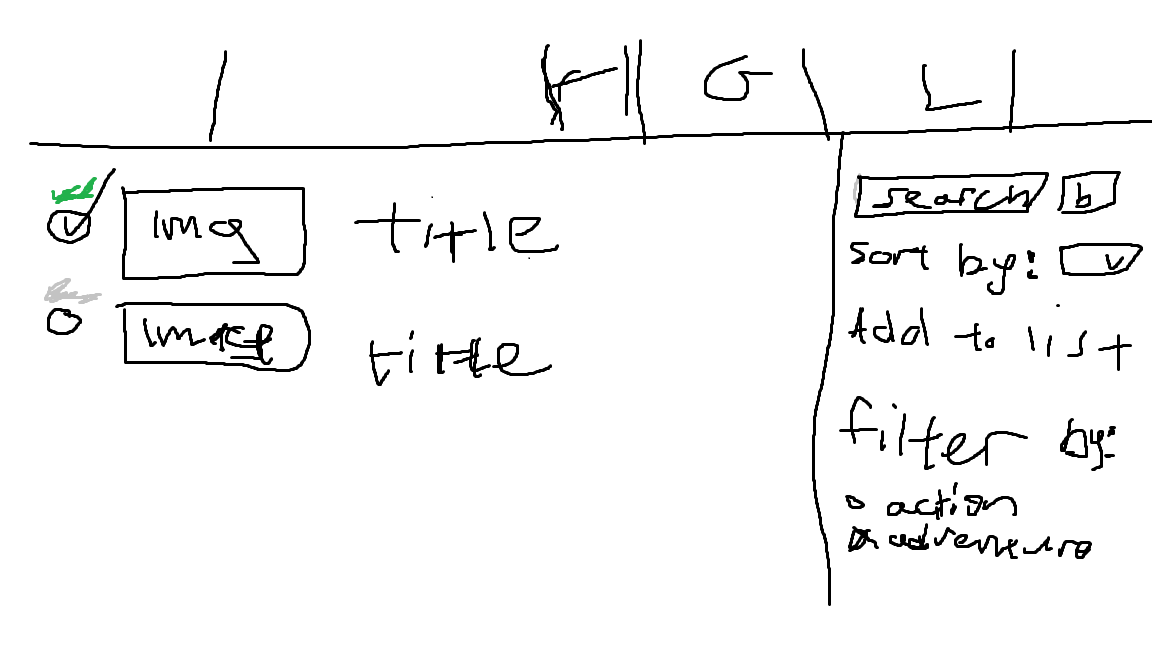 H G L
img title
image title
search b
Sort by: v
Add to list
filter by:
action
adventure